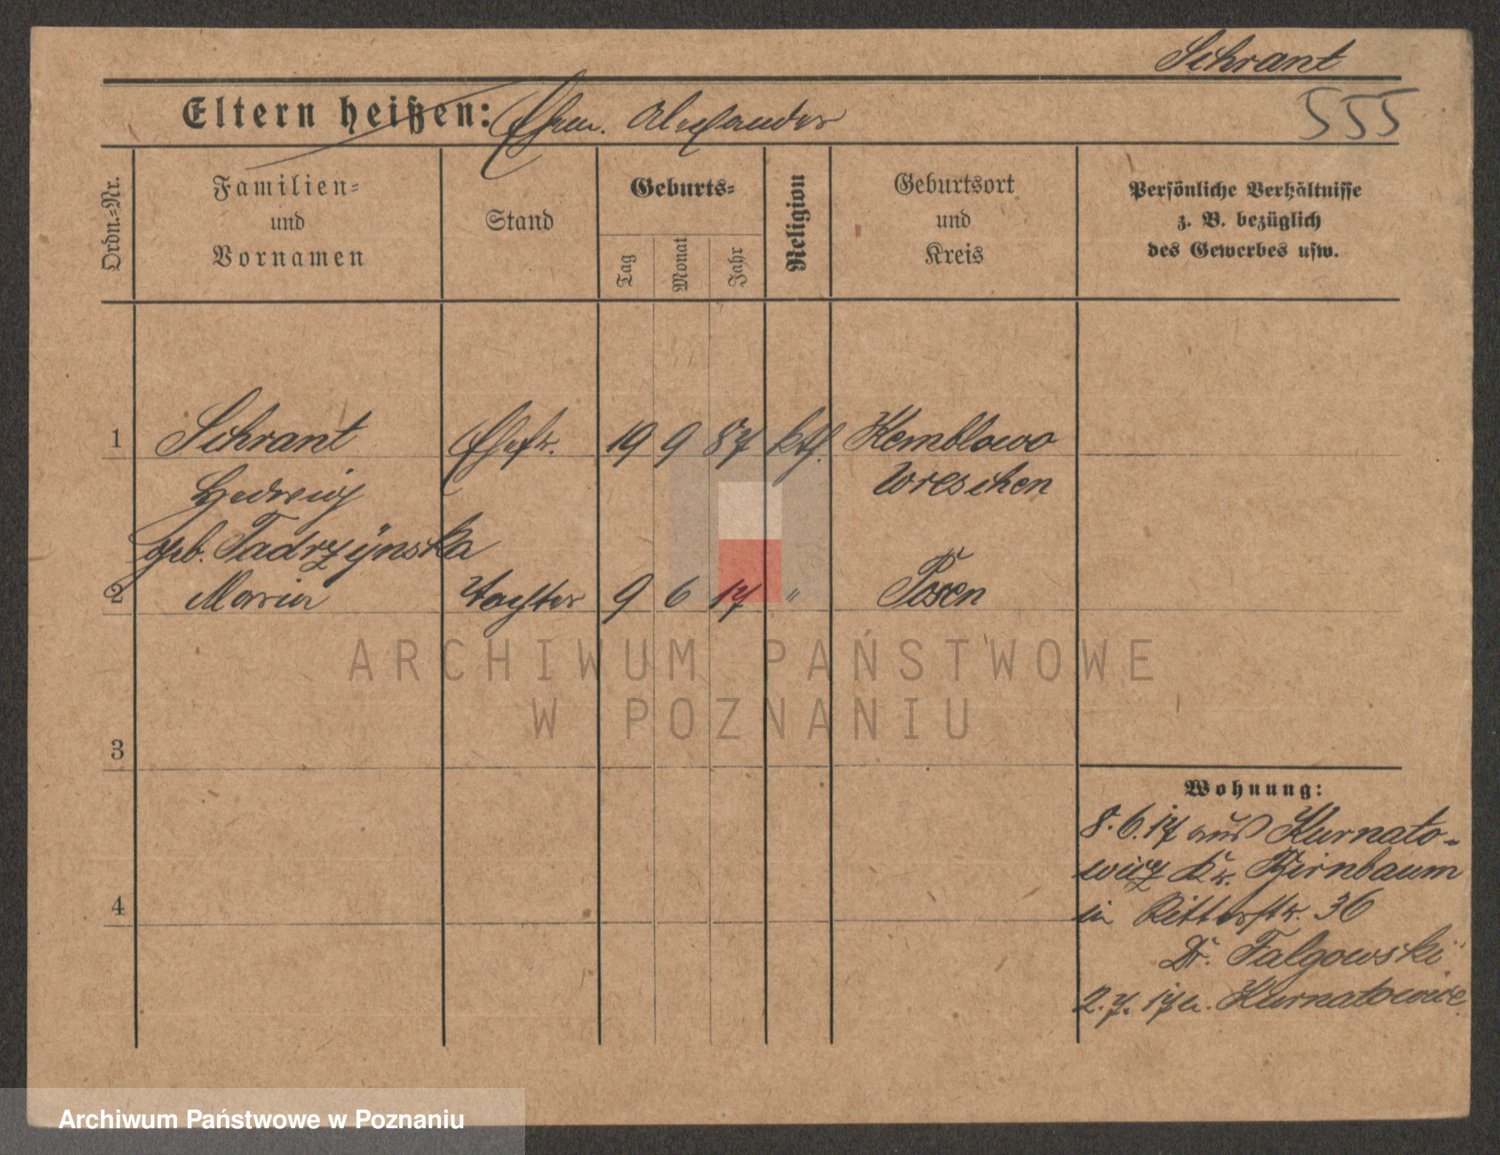 Schrant
555
Eltern heißen: Ehem. Alexander
Ordn.-Nr.
Familien-
und
Vornamen
Stand
Geburts-
Tag
Monat
Jahr
Religion
Geburtsort
und
Kreis
Persönliche Verhältnisse
z. B. bezüglich
des Gewerbes usw.
1 Schrant Ehefr. 19 9 87 kth. Kemblowo
Hedwig Wreschen
geb. Tadrzÿnska
2 Maria Tochter 9 6 17 " Posen
3
4
Wohnung:
8.6.17 aus Kurnato-
wicz Kr. Birnbaum
in Ritterstr. 36
Dr. Falgowski
2.7.17 n. Kurnatowice
ARCHIWUM PAŃSTWOWE
W POZNANIU
Archiwum Państwowe w Poznaniu